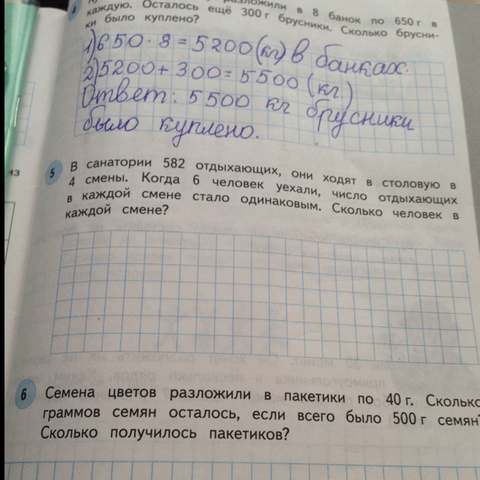 разложили в 8 банок по 650 г в
каждую. Осталось ещё 300 г брусники. Сколько брусни-
ки было куплено?
1) 650 · 8 = 5200 (кг) в банках.
2) 5200 + 300 = 5500 (кг)
Ответ: 5500 кг брусники
было куплено.
13
5 В санатории 582 отдыхающих, они ходят в столовую в
4 смены. Когда 6 человек уехали, число отдыхающих
в каждой смене стало одинаковым. Сколько человек в
каждой смене?
6 Семена цветов разложили в пакетики по 40 г. Сколько
граммов семян осталось, если всего было 500 г семян?
Сколько получилось пакетиков?